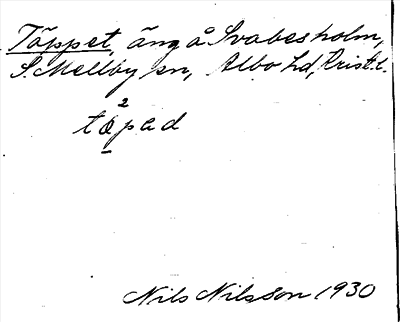 Täppet, äng å Svabesholm,
S. Mellby sn, Albo hd, Krist. l.
2
tạpad
Nils Nilsson 1930